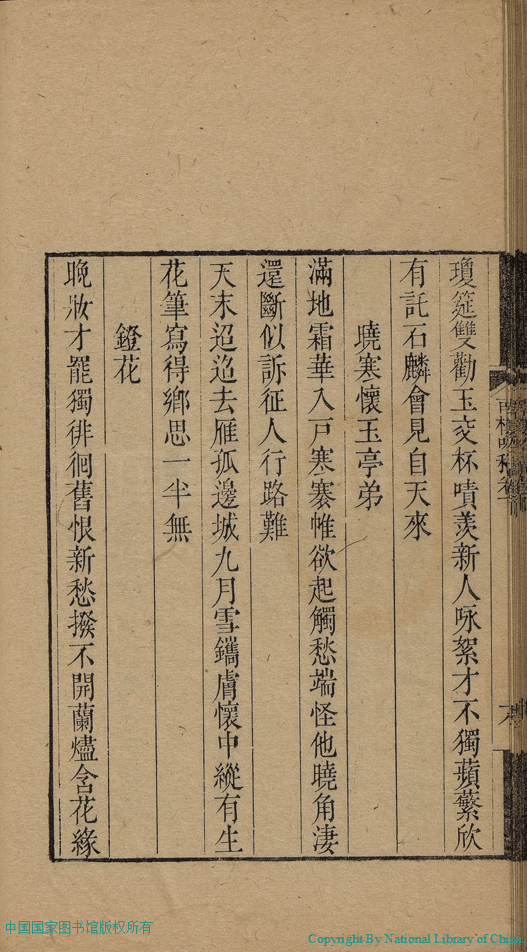 瓊筵雙勸玉交杯嘖羨新人咏絮才不獨蘋蘩欣
有託石麟會見自天來
曉寒懷玉亭弟
滿地霜華入戸寒褰帷欲起觸愁端怪他曉角凄
還斷似訴征人行路難
天末迢迢去雁孤邊城九月雪鐫膚懷中縱有生
花筆寫得鄉思一半無
鐙花
晚妝才罷獨徘徊舊恨新愁撥不開蘭燼含花緣
中国国家图书馆版权所有
Copyright By National Library of China